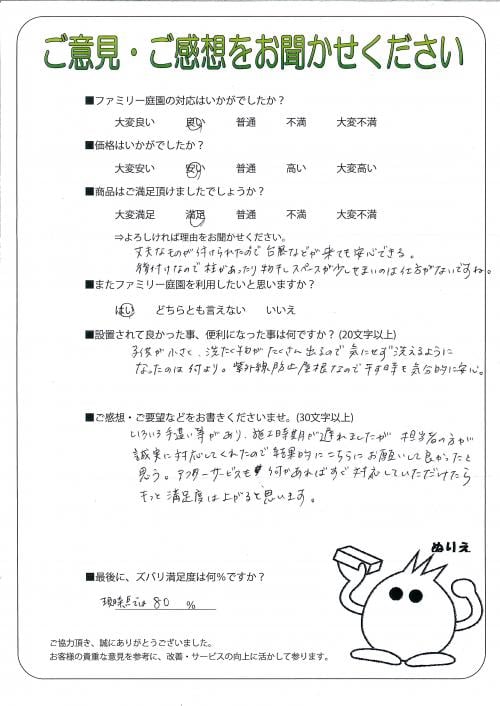 ご意見・ご感想をお聞かせください
■ファミリー庭園の対応はいかがでしたか？
大変良い 良い 普通 不満 大変不満
■価格はいかがでしたか？
大変安い 安い 普通 高い 大変高い
■商品はご満足頂けましたでしょうか？
大変満足 満足 普通 不満 大変不満
⇒よろしければ理由をお聞かせください。
丈夫なものが付けられたので台風などが来ても安心できる。
後付けなので柱があったり物干しスペースが少しせまいのは仕方がないですね。
■またファミリー庭園を利用したいと思いますか？
はい どちらとも言えない いいえ
■設置されて良かった事、便利になった事は何ですか？(20文字以上)
子供が小さく、洗たく物がたくさん出るので気にせず洗えるように
なったのは何より。紫外線防止屋根なので干す時も気分的に安心。
■ご感想・ご要望などをお書きくださいませ。(30文字以上)
いろいろ手違い等があり、施工時期が遅れましたが 担当者の方が
誠実に対応してくれたので結果的にこちらにお願いして良かったと
思う。アフターサービスも 何かあればすぐ対応していただけたら
もっと満足度は上がると思います。
ぬりえ
■最後に、ズバリ満足度は何％ですか？
現時点では 80 ％
ご協力頂き、誠にありがとうございました。
お客様の貴重な意見を参考に、改善・サービスの向上に活かして参ります。